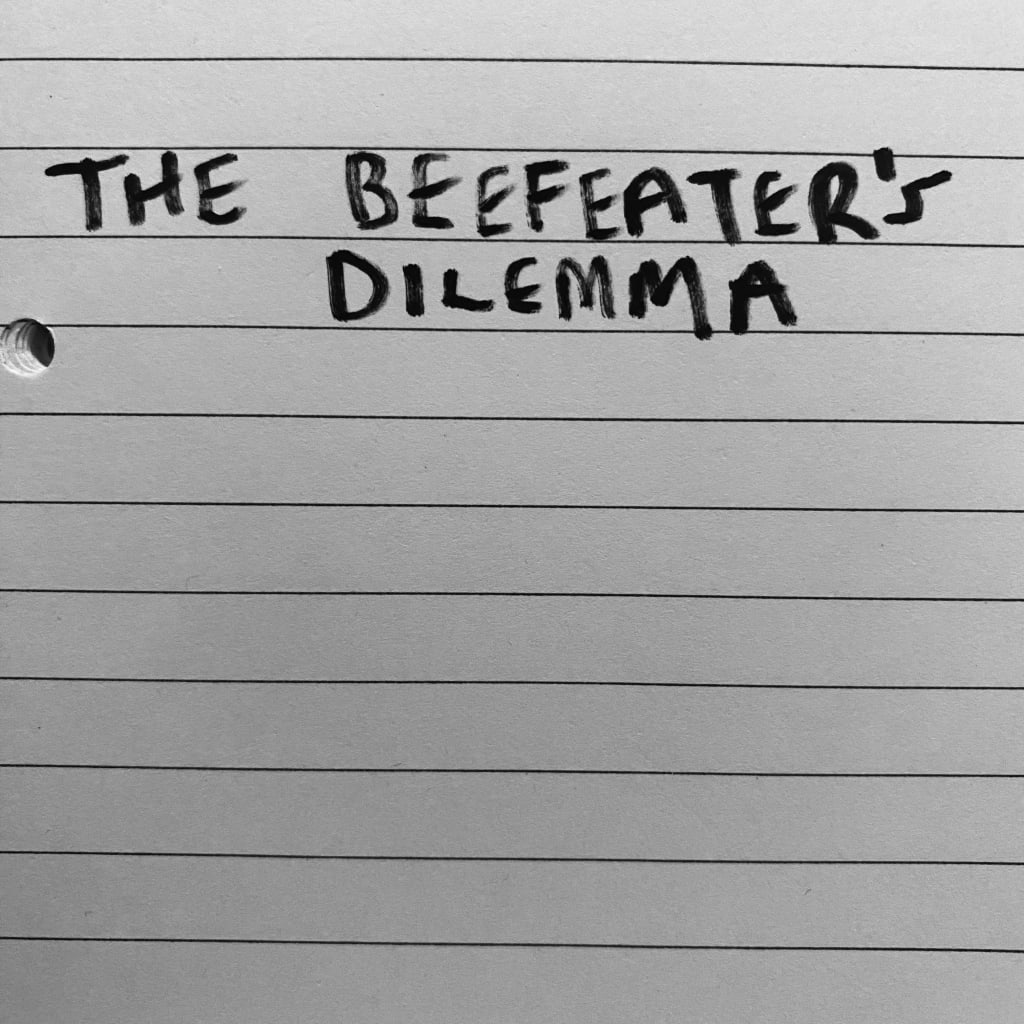 THE BEEFEATER'S
DILEMMA